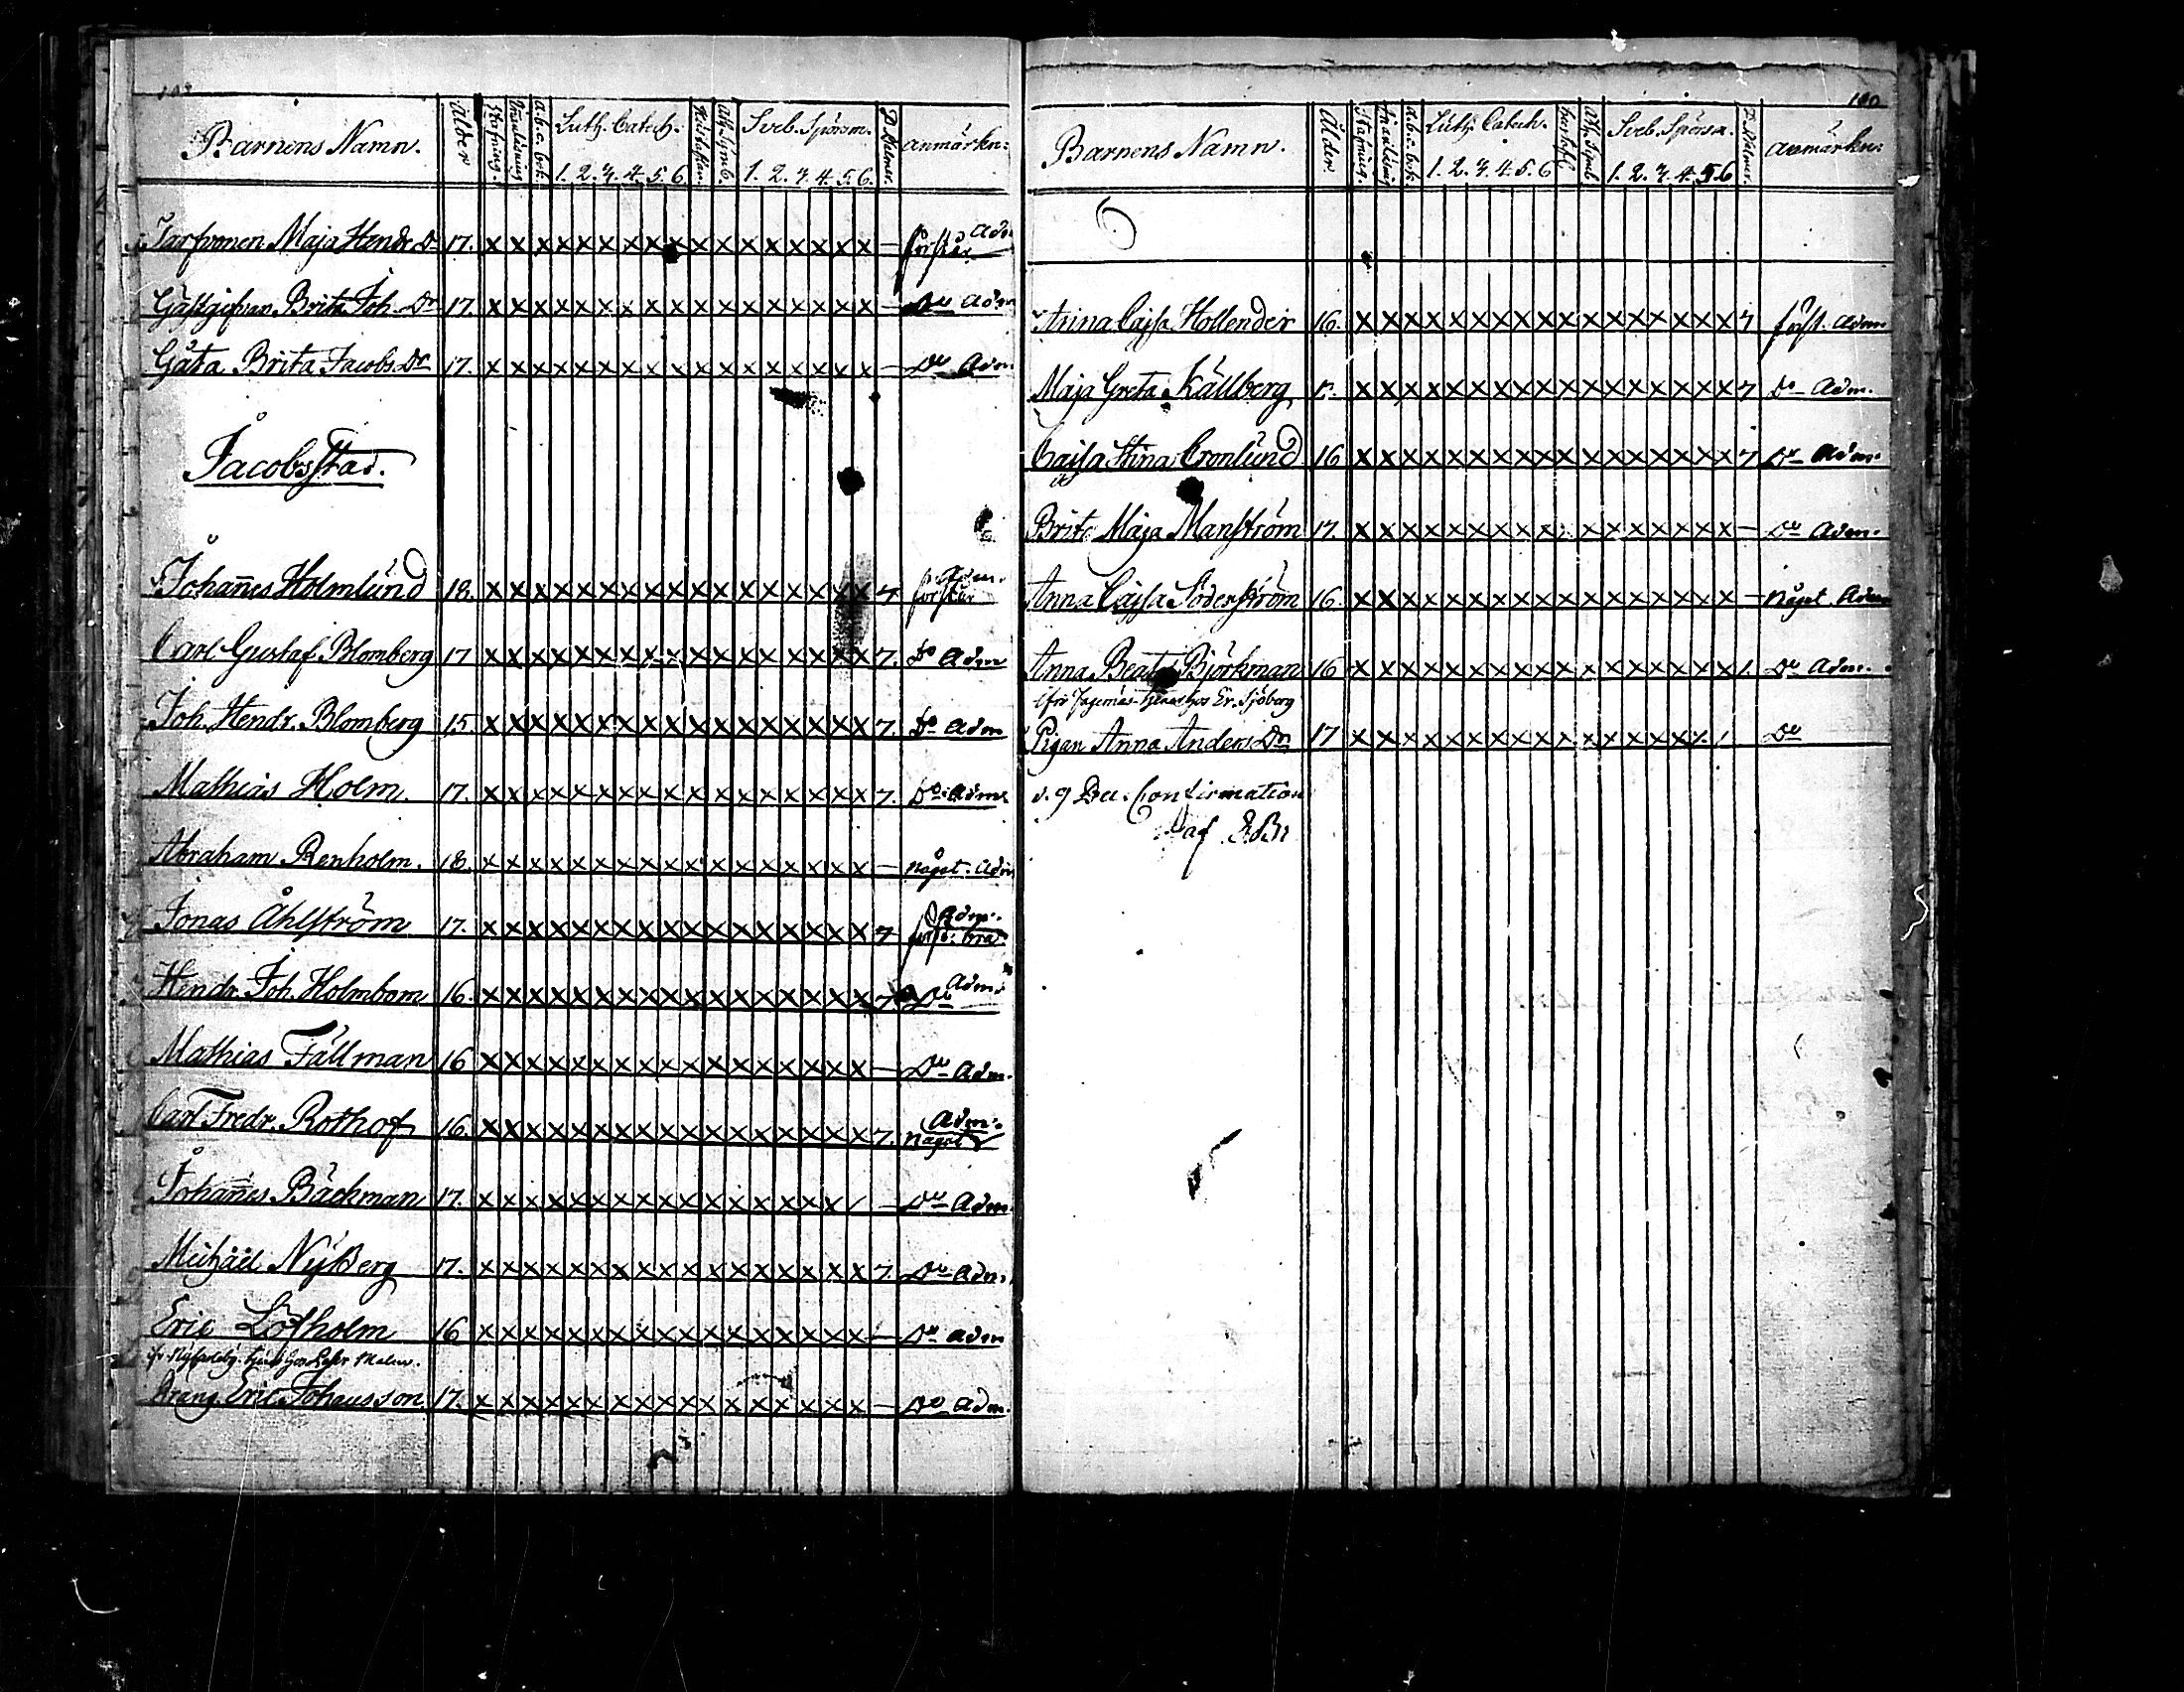 Barnens Namn. Ålder Stafning. Innanläsning a.b.c. bok. Luth. Catech. 1. 2. 3. 4. 5. 6. Hustaflan. Ath. Symb. Sveb. Spörsm. 1. 2. 3. 4. 5. 6. D. Psalmer. anmärkn:
Maja Hendr. Dr 17. x x x x x x x x x x x x x x x x x — förstår Adm
Brita Joh. Dr 17. x x x x x x x x x x x x x x x x x — Do Adm
Gåta Brita Jacobs Dr 17. x x x x x x x x x x x x x x x x x — Do Adm.
Jacobsstad.
Johannes Holmlund 18. x x x x x x x x x x x x x x x x x 7 förstår Adm.
Carl Gustaf Blomberg 17 x x x x x x x x x x x x x x x x x 7. Do Adm
Joh. Hendr. Blomberg 15. x x x x x x x x x x x x x x x x x 7. Do Adm
Mathias Holm. 17. x x x x x x x x x x x x x x x x x 7. Do Adm.
Abraham Renholm. 18. x x x x x x x x x x x x x x x x x — något. Adm
Jonas Åhlström 17. x x x x x x x x x x x x x x x x x 7 först. bra Adm.
Hendr. Joh. Holmbom 16. x x x x x x x x x x x x x x x x x 7. Do Adm.
Mathias Fällman 16 x x x x x x x x x x x x x x x x x — Do Adm.
Carl Fredr. Rothof 16. x x x x x x x x x x x x x x x x x 7. något Adm.
Johannes Bäckman 17. x x x x x x x x x x x x x x x x / — Do Adm.
Michaël Nyberg 17. x x x x x x x x x x x x x x x x x 7. Do Adm.
Eric Löfholm 16 x x x x x x x x x x x x x x x x x — Do Adm
Malm.
Dräng Eric Johansson 17. x x x x x x x x x x x x x x x x x — Do Adm.
100
Barnens Namn. Ålder Stafning. Innanläsning a.b.c. bok. Luth. Catech. 1. 2. 3. 4. 5. 6 hustafl. Ath. Symb. Sveb. Spörsm. 1. 2. 3. 4. 5. 6 D. Psalmer. anmärkn:
Anna Cajsa Hollender 16. x x x x x x x x x x x x x x x x x 7 först. Adm.
Maja Greta Källberg x x x x x x x x x x x x x x x x x 7 Do Adm.
Cajsa Stina Cronlund 16 x x x x x x x x x x x x x x x x x 7 Do Adm.
Brita Maja Manström 17. x x x x x x x x x x x x x x x x x — Do Adm.
Anna Cajsa Söderström 16. x x x x x x x x x x x x x x x x x — något. Adm
Anna Beata Björkman 16 x x x x x x x x x x x x x x x x x 1. Do Adm.
hos Er. Sjöberg
Pigan Anna Anders Dr 17 x x x x x x x x x x x x x x x x / Do
d. 9 Dec. Confirmation
af